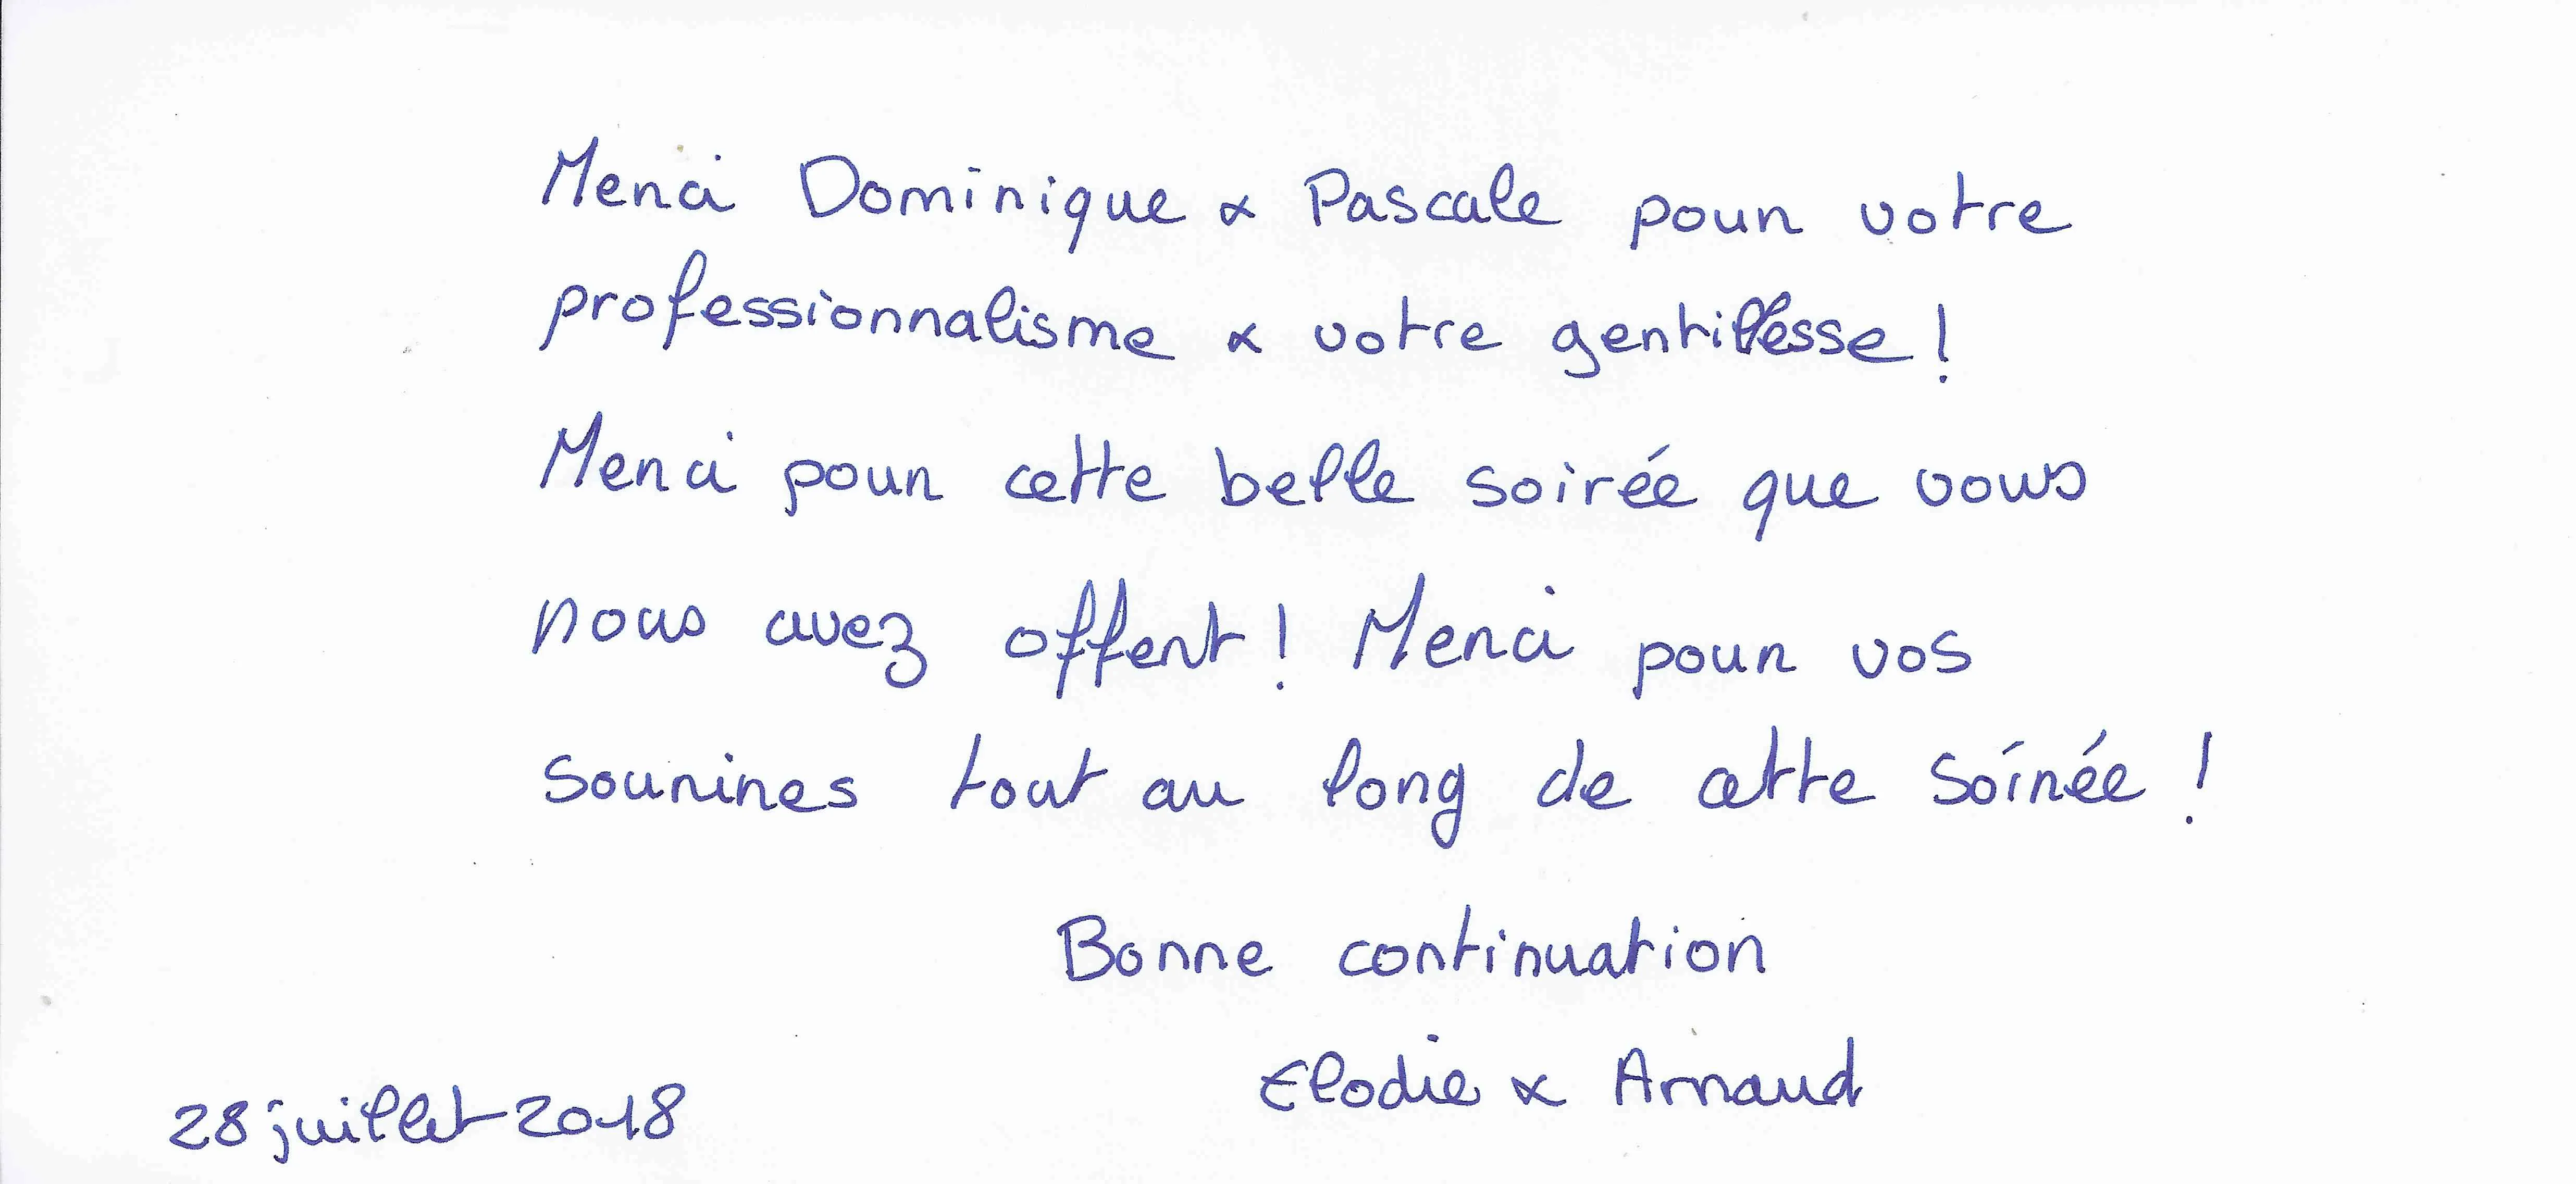 Merci Dominique & Pascale pour votre
professionnalisme & votre gentillesse !
Merci pour cette belle soirée que vous
nous avez offert ! Merci pour vos
sourires tout au long de cette soirée !
Bonne continuation
Elodie & Arnaud
28 juillet 2018